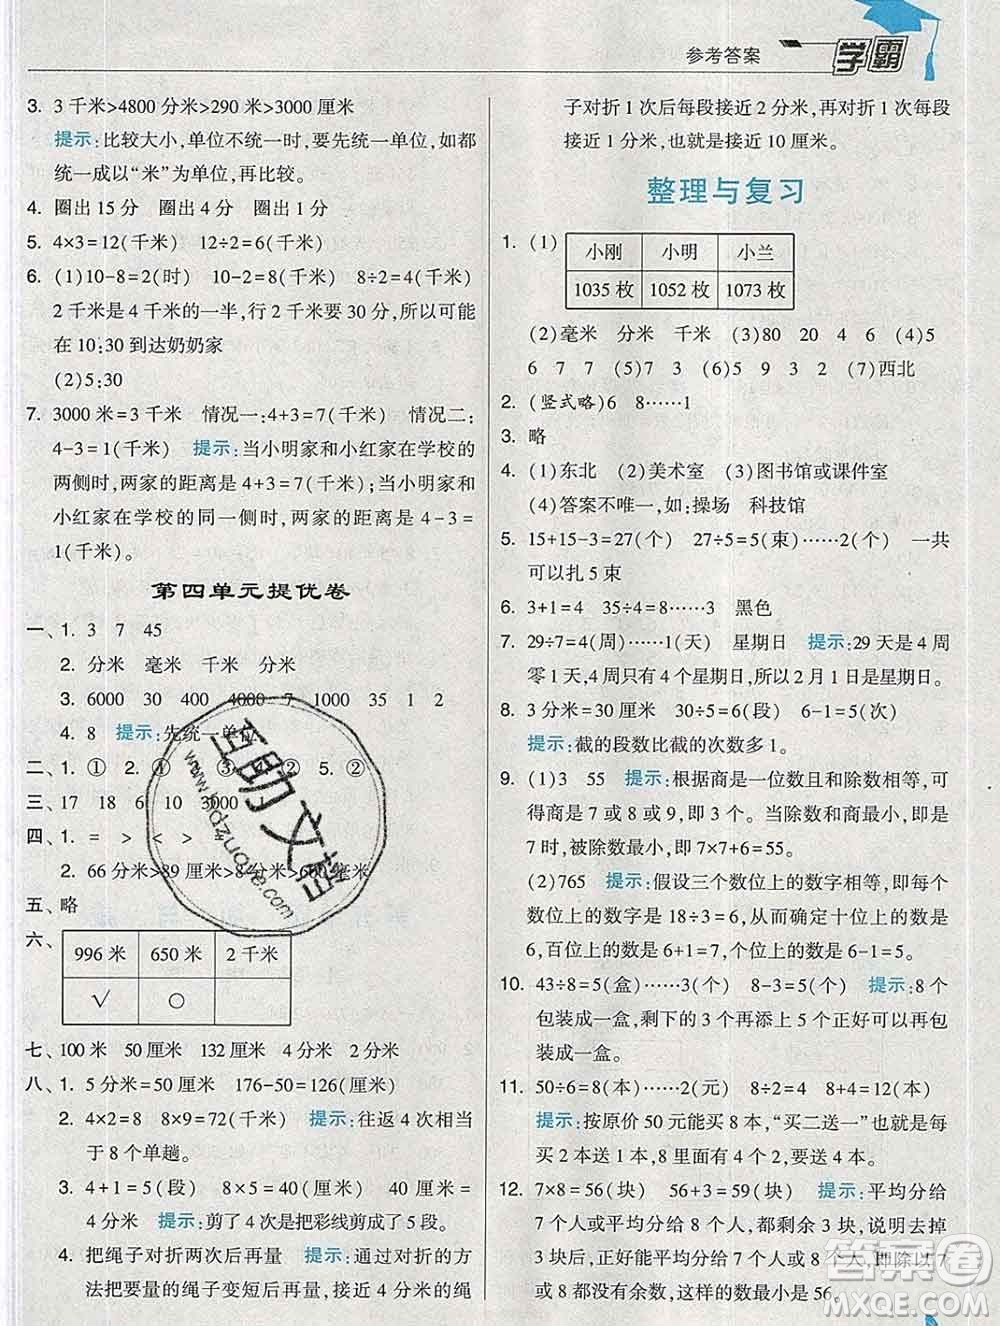 参考答案
学霸
3. 3 千米>4800 分米>290 米>3000 厘米
提示:比较大小,单位不统一时,要先统一单位,如都
统一成以“米”为单位,再比较。
4. 圈出 15 分 圈出 4 分 圈出 1 分
5. 4×3=12(千米) 12÷2=6(千米)
6. (1)10-8=2(时) 10-2=8(千米) 8÷2=4(千米)
2 千米是 4 千米的一半,行 2 千米要 30 分,所以可能
在 10:30 到达奶奶家
(2)5:30
7. 3000 米=3 千米 情况一:4+3=7(千米) 情况二:
4-3=1(千米) 提示:当小明家和小红家在学校的
两侧时,两家的距离是 4+3=7(千米);当小明家和
小红家在学校的同一侧时,两家的距离是 4-3=
1(千米)。
第四单元提优卷
一、1. 3 7 45
2. 分米 毫米 千米 分米
3. 6000 30 400 4000 7 1000 35 1 2
4. 8 提示:先统一单位
二、1. ① 2. ④ ③ ② 5. ②
三、17 18 6 10 3000
四、1. = > < >
2. 66 分米>89 厘米>8 分米>660 毫米
五、略
六、
996 米 650 米 2 千米
√ ○
七、100 米 50 厘米 132 厘米 4 分米 2 分米
八、1. 5 分米=50 厘米 176-50=126(厘米)
2. 4×2=8 8×9=72(千米) 提示:往返 4 次相当
于 8 个单趟。
3. 4+1=5(段) 8×5=40(厘米) 40 厘米=
4 分米 提示:剪了 4 次是把彩线剪成了 5 段。
4. 把绳子对折两次后再量 提示:通过对折的方
法把要量的绳子变短后再量,接近 4 分米的绳
子对折 1 次后每段接近 2 分米,再对折 1 次每段
接近 1 分米,也就是接近 10 厘米。
整理与复习
1. (1)
小刚 小明 小兰
1035 枚 1052 枚 1073 枚
(2)毫米 分米 千米 (3)80 20 4 (4)5
6 7 7 (5)7 (6)5 9 3 2 (7)西北
2. (竖式略) 6 8……1
3. 略
4. (1)东北 (2)美术室 (3)图书馆或课件室
(4)答案不唯一,如:操场 科技馆
5. 15+15-3=27(个) 27÷5=5(束)……2(个) 一共
可以扎 5 束
6. 3+1=4 35÷4=8……3 黑色
7. 29÷7=4(周)……1(天) 星期日 提示:29 天是 4 周
零 1 天,因为只有 4 个星期日,所以 2 月 1 日是星期日。
8. 3 分米=30 厘米 30÷5=6(段) 6-1=5(次)
提示:截的段数比截的次数多 1。
9. (1)3 55 提示:根据商是一位数且和除数相等,可
得商是 7 或 8 或 9,即 3 个。当除数和商最小,即
7,余数最小,即 6 时,被除数最小,即 7×7+6=55。
(2)765 提示:假设三个数位上的数字相等,即
每个数位上的数字是 18÷3=6,从而确定十位上的数是
6,百位上的数是 6+1=7,个位上的数是 6-1=5。
10. 43÷8=5(盒)……3(个) 8-3=5(个) 提示:8 个
包装成一盒,剩下的 3 个再添上 5 个正好可以再包
装成一盒。
11. 50÷6=8(本)……2(元) 8÷2=4 8+4=12(本)
提示:按原价 50 元能买 8 本,“买二送一”也就是每
买 2 本送 1 本,8 里面有 4 个 2,所以送 4 本。
12. 7×8=56(块) 56+3=59(块) 提示:平均分给
7 个人或平均分给 8 个人,都多 3 块,说明去掉
3 块后,正好能平均分给 7 个人或 8 个人,即除以 7
或 8 都没有余数,这样的数最小是 56。
互助文档
www.hdzuoye.com
答案圈
MXQE.COM